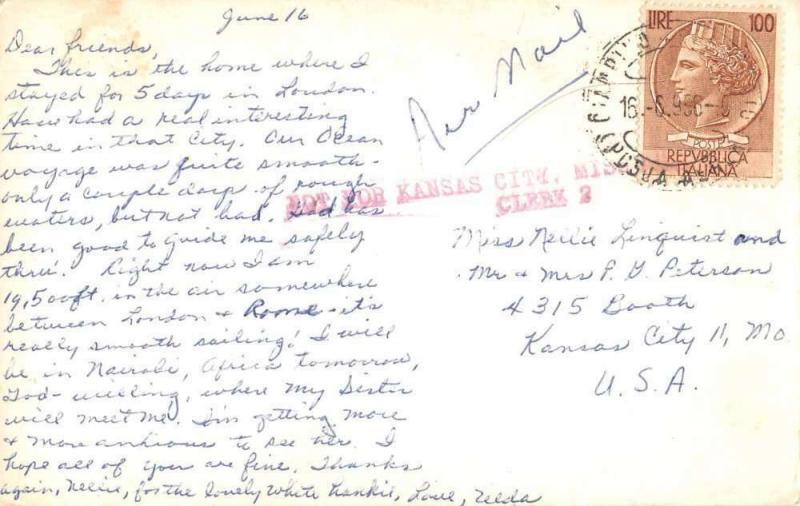 June 16
Dear friends,
This is the home where I
stayed for 5 days in London.
Have had a real interesting
time in that City. Our Ocean
voyage was quite smooth -
only a couple days of rough
waters, but not bad. God has
been good to guide me safely
thru'. Right now I am
19,500 ft. in the air somewhere
between London & Rome - it's
really smooth sailing! I will
be in Nairobi, Africa tomorrow,
God-willing, where my Sister
will meet me. I'm getting more
& more anxious to see her. I
hope all of you are fine. Thanks
again, Nellie, for the lovely white hankie, Love, Velda
Air Mail
LIRE 100
16.-6.956-
POSTE
REPVBBLICA
ITALIANA
NOT FOR KANSAS CITY, MIS
CLERK 2
Miss Nellie Linquist and
Mr & Mrs P. G. Peterson
4315 Booth
Kansas City 11, Mo
U.S.A.